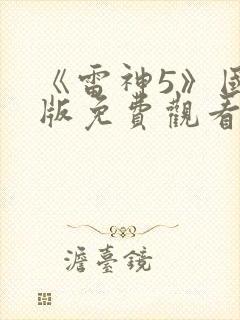 《雷神5》國
版免費觀看
澹臺鏡